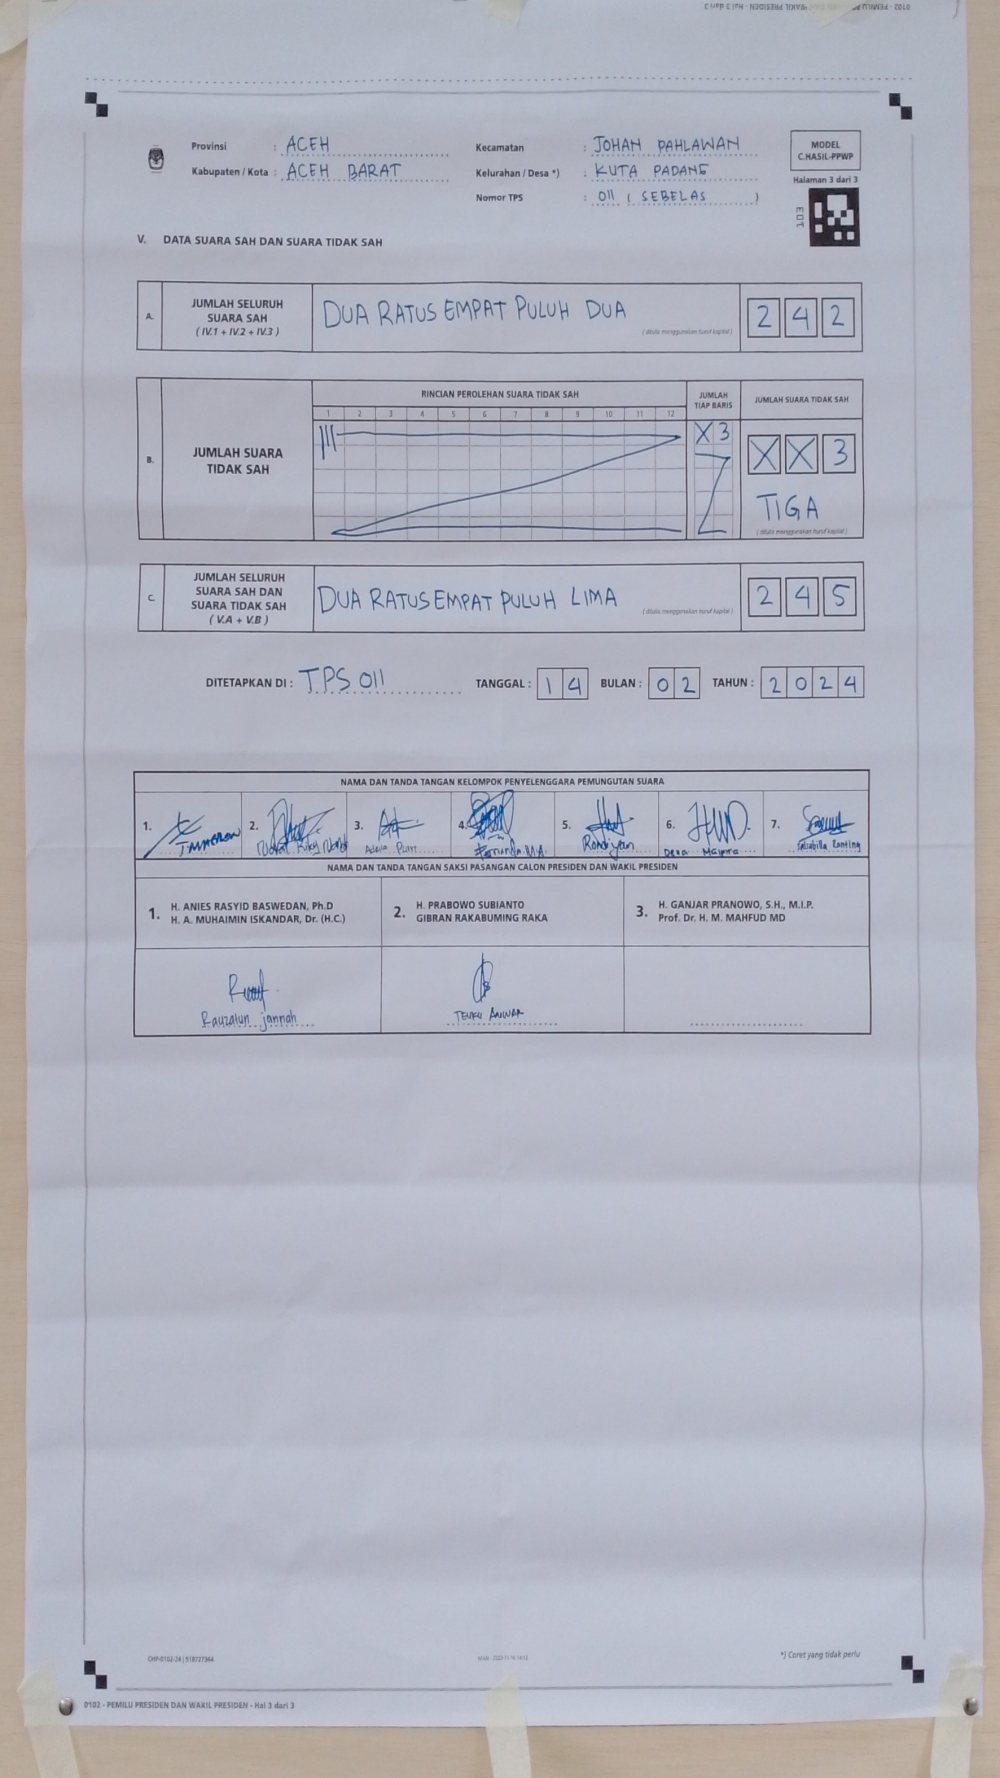 Provinsi : ACEH
Kabupaten / Kota : ACEH BARAT
Kecamatan : JOHAN PAHLAWAN
Kelurahan / Desa *) : KUTA PADANG
Nomor TPS : 011 ( SEBELAS )
MODEL
C.HASIL-PPWP
Halaman 3 dari 3
V. DATA SUARA SAH DAN SUARA TIDAK SAH
A. JUMLAH SELURUH
SUARA SAH
( IV.1 + IV.2 + IV.3 )
DUA RATUS EMPAT PULUH DUA
( ditulis menggunakan huruf kapital )
2 4 2
B. JUMLAH SUARA
TIDAK SAH
RINCIAN PEROLEHAN SUARA TIDAK SAH
1 2 3 4 5 6 7 8 9 10 11 12
JUMLAH
TIAP BARIS
X 3
JUMLAH SUARA TIDAK SAH
X X 3
TIGA
( ditulis menggunakan huruf kapital )
C. JUMLAH SELURUH
SUARA SAH DAN
SUARA TIDAK SAH
( V.A + V.B )
DUA RATUS EMPAT PULUH LIMA
( ditulis menggunakan huruf kapital )
2 4 5
DITETAPKAN DI : TPS 011 TANGGAL : 1 4 BULAN : 0 2 TAHUN : 2 0 2 4
NAMA DAN TANDA TANGAN KELOMPOK PENYELENGGARA PEMUNGUTAN SUARA
1. 2. 3. 4. 5. 6. 7.
NAMA DAN TANDA TANGAN SAKSI PASANGAN CALON PRESIDEN DAN WAKIL PRESIDEN
1. H. ANIES RASYID BASWEDAN, Ph.D
H. A. MUHAIMIN ISKANDAR, Dr. (H.C.)
2. H. PRABOWO SUBIANTO
GIBRAN RAKABUMING RAKA
3. H. GANJAR PRANOWO, S.H., M.I.P.
Prof. Dr. H. M. MAHFUD MD
Rauzatun jannah
TEUKU ANWAR
*) Coret yang tidak perlu
0102 - PEMILU PRESIDEN DAN WAKIL PRESIDEN - Hal 3 dari 3